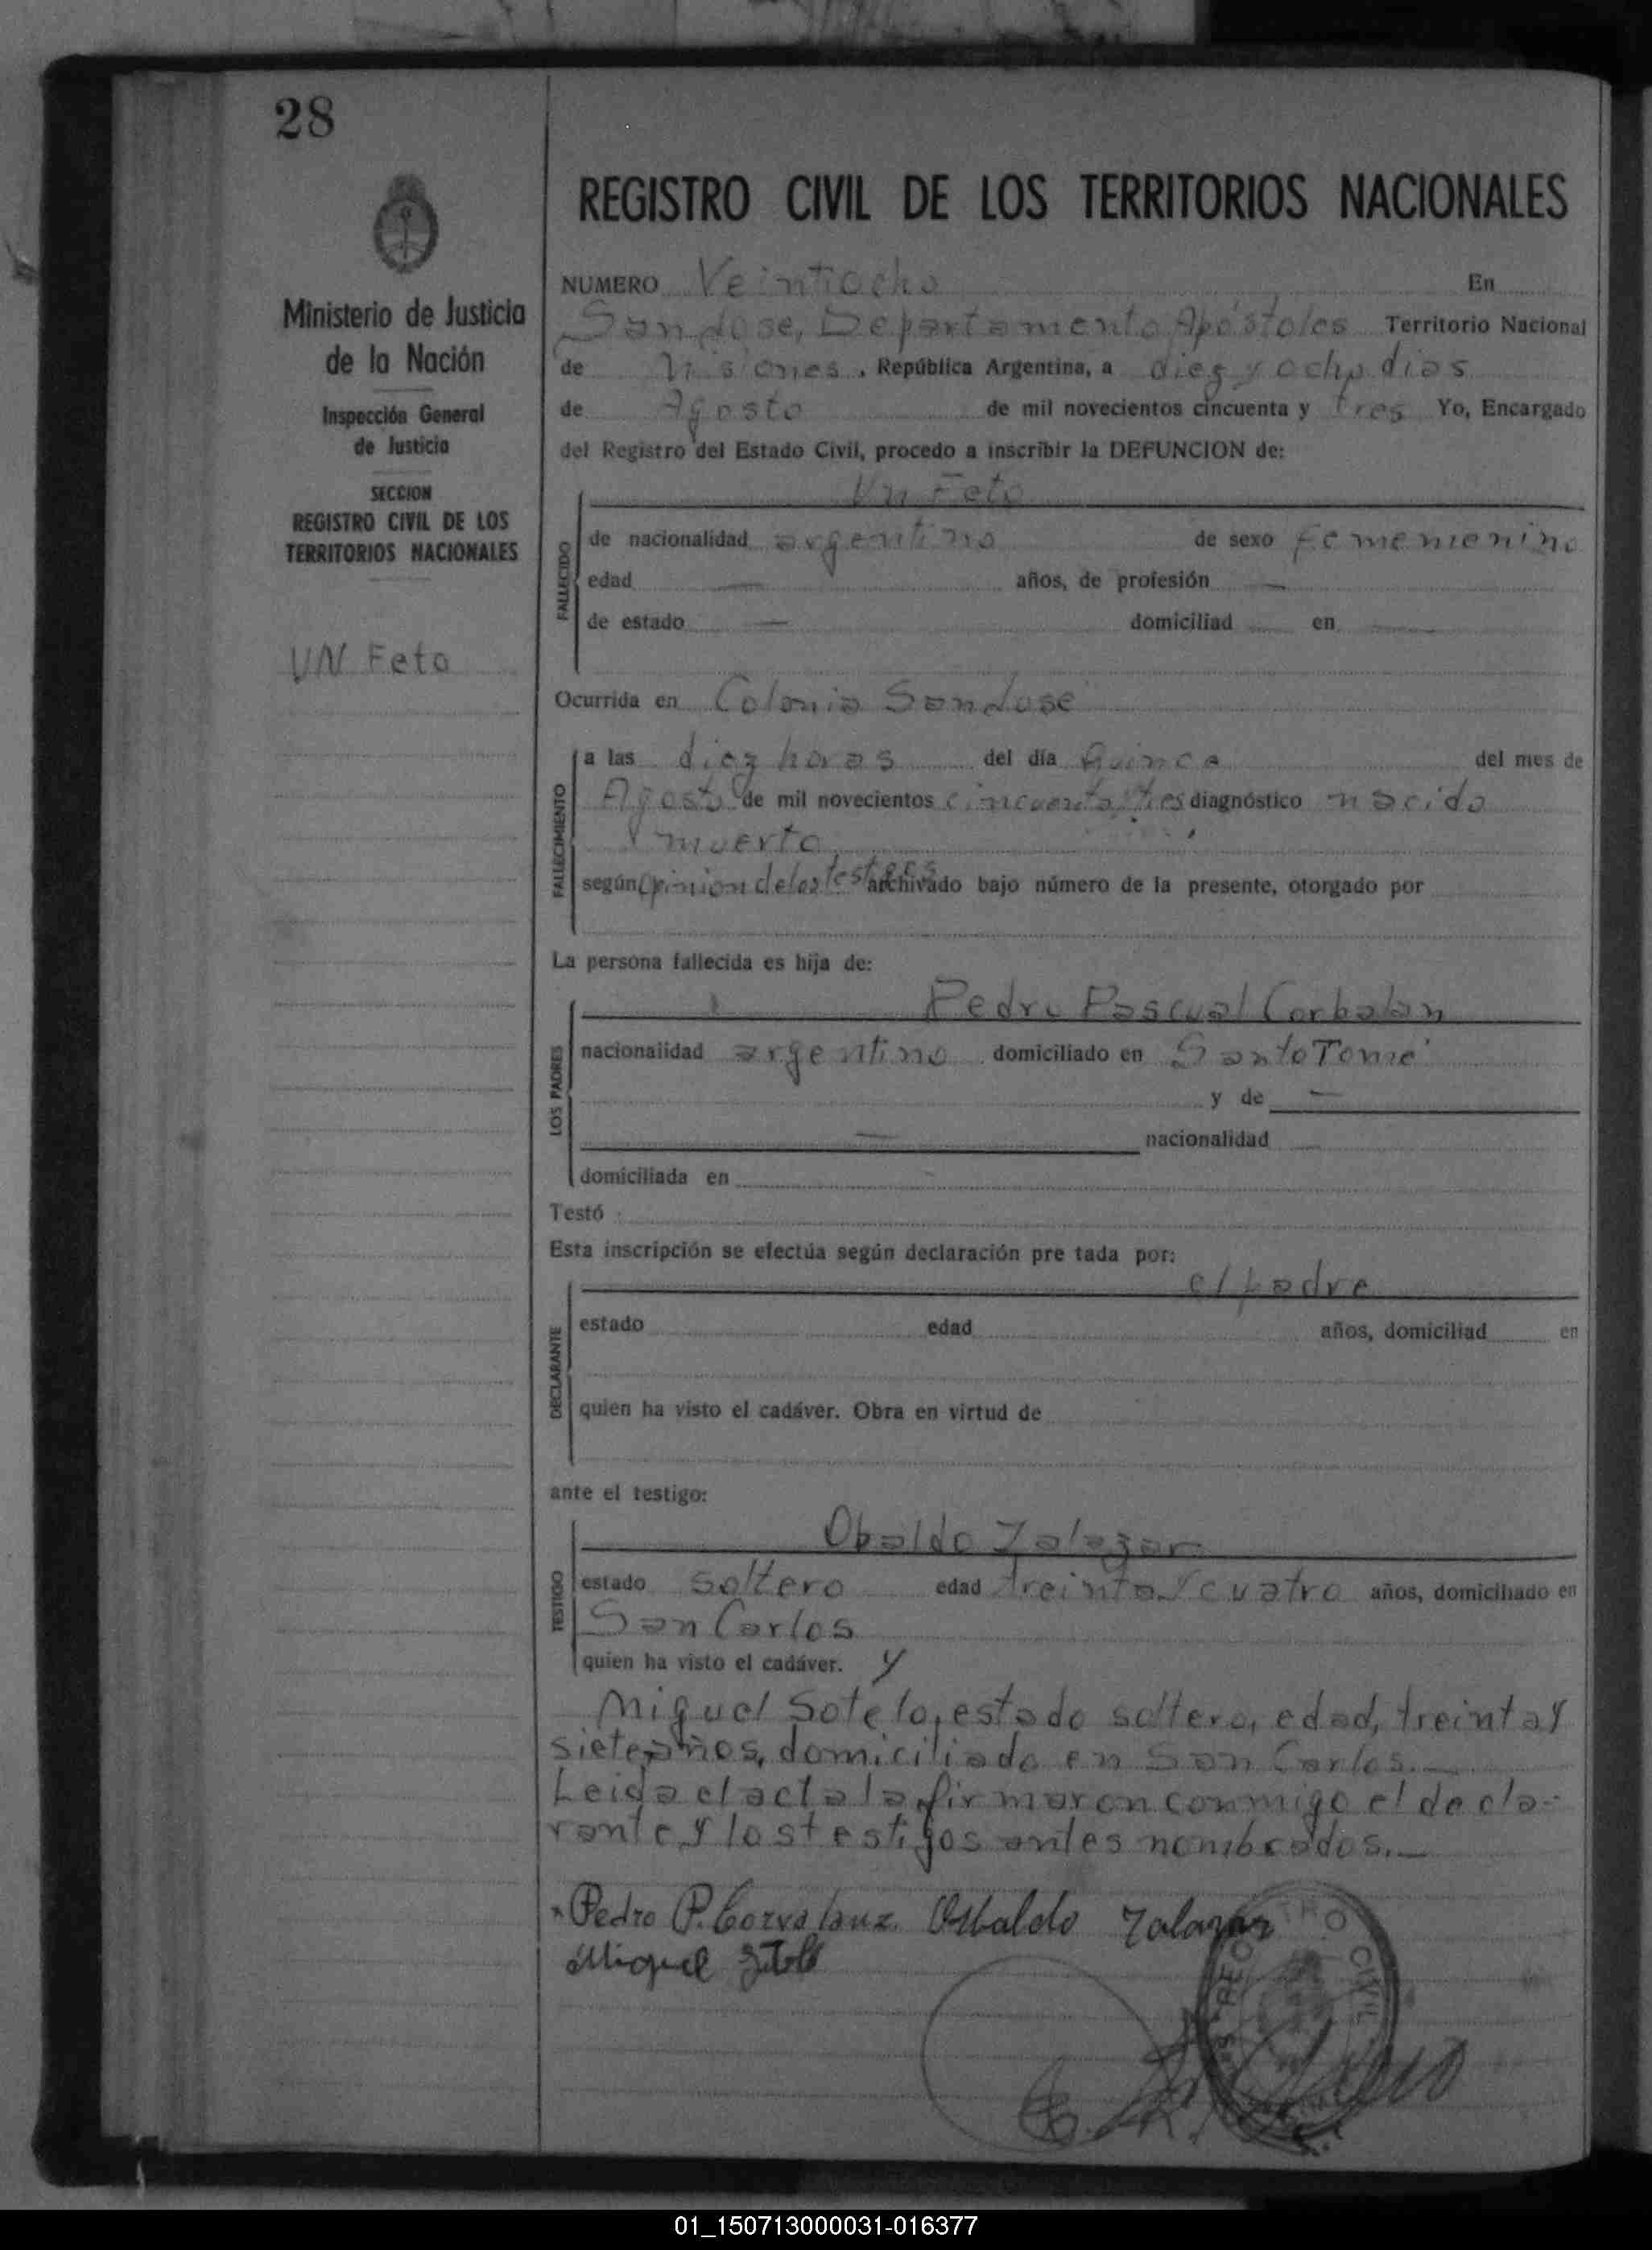 28
REGISTRO CIVIL DE LOS TERRITORIOS NACIONALES
Ministerio de Justicia
de la Nación
Inspección General
de Justicia
SECCION
REGISTRO CIVIL DE LOS
TERRITORIOS NACIONALES
UN Feto
NUMERO Veintiocho En
San Jose, Departamento Apóstoles Territorio Nacional
de Misiones, República Argentina, a diez y ocho dias
de Agosto de mil novecientos cincuenta y tres Yo, Encargado
del Registro del Estado Civil, procedo a inscribir la DEFUNCION de:
Un Feto
FALLECIDO
de nacionalidad argentino de sexo femenienino
edad — años, de profesión —
de estado — domiciliad en —
Ocurrida en Colonia San Jose
FALLECIMIENTO
a las diez horas del día Quince del mes de
Agosto de mil novecientos cincuenta y tres diagnóstico nacido
muerto
según opinion de los testigos archivado bajo número de la presente, otorgado por
La persona fallecida es hija de:
LOS PADRES
Pedro Pascual Corbalan
nacionalidad argentino domiciliado en Santo Tomé
y de —
— nacionalidad —
domiciliada en
Testó
Esta inscripción se efectúa según declaración pre tada por:
DECLARANTE
el padre
estado edad años, domiciliad en
quien ha visto el cadáver. Obra en virtud de
ante el testigo:
TESTIGO
Obaldo Zalazar
estado soltero edad treinta y cuatro años, domiciliado en
San Carlos
quien ha visto el cadáver. y
Miguel Sotelo, estado soltero, edad, treinta y
siete años, domiciliado en San Carlos.—
Leida el acta la firmaron conmigo el decla-
rante y los testigos antes nombrados.—
Pedro P. Corvalan Osbaldo Zalazar
Miguel Sotelo
REGISTRO CIVIL
01_150713000031-016377